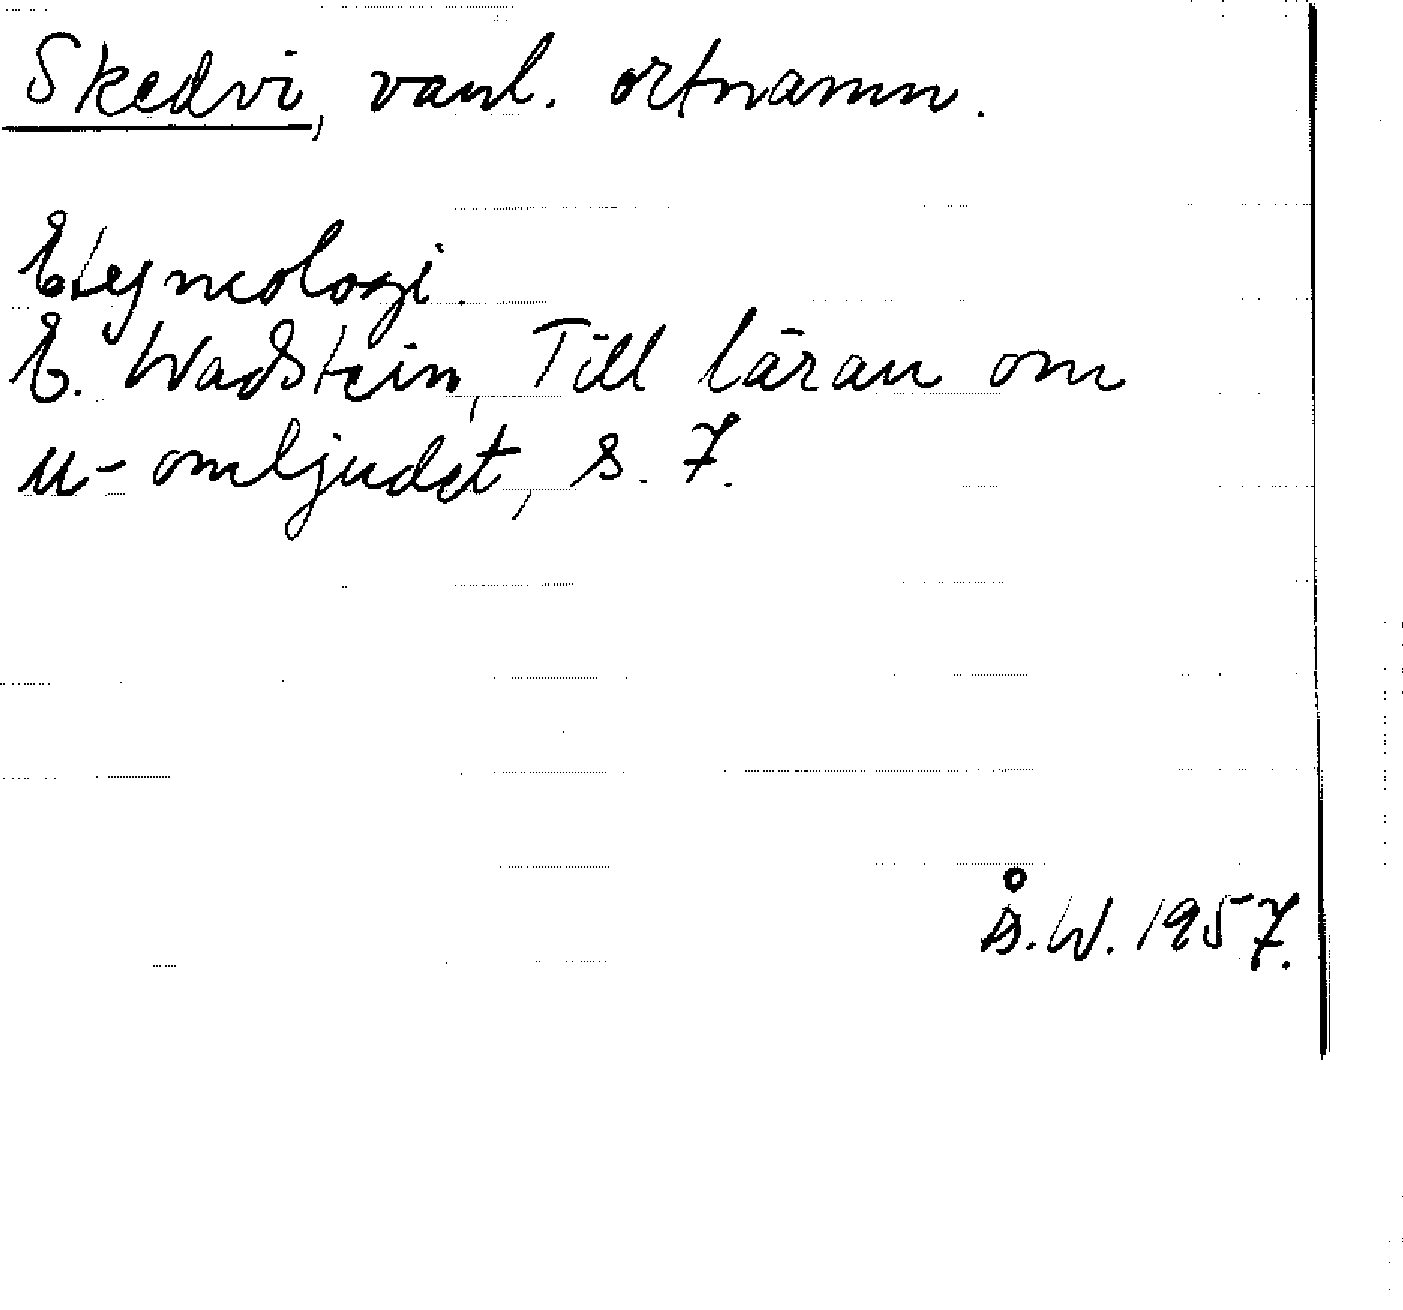 Skedvi, vanl. ortnamn.
Etymologi.
E. Wadstein, Till läran om
u-omljudet, s. 7.
Å.W. 1957.